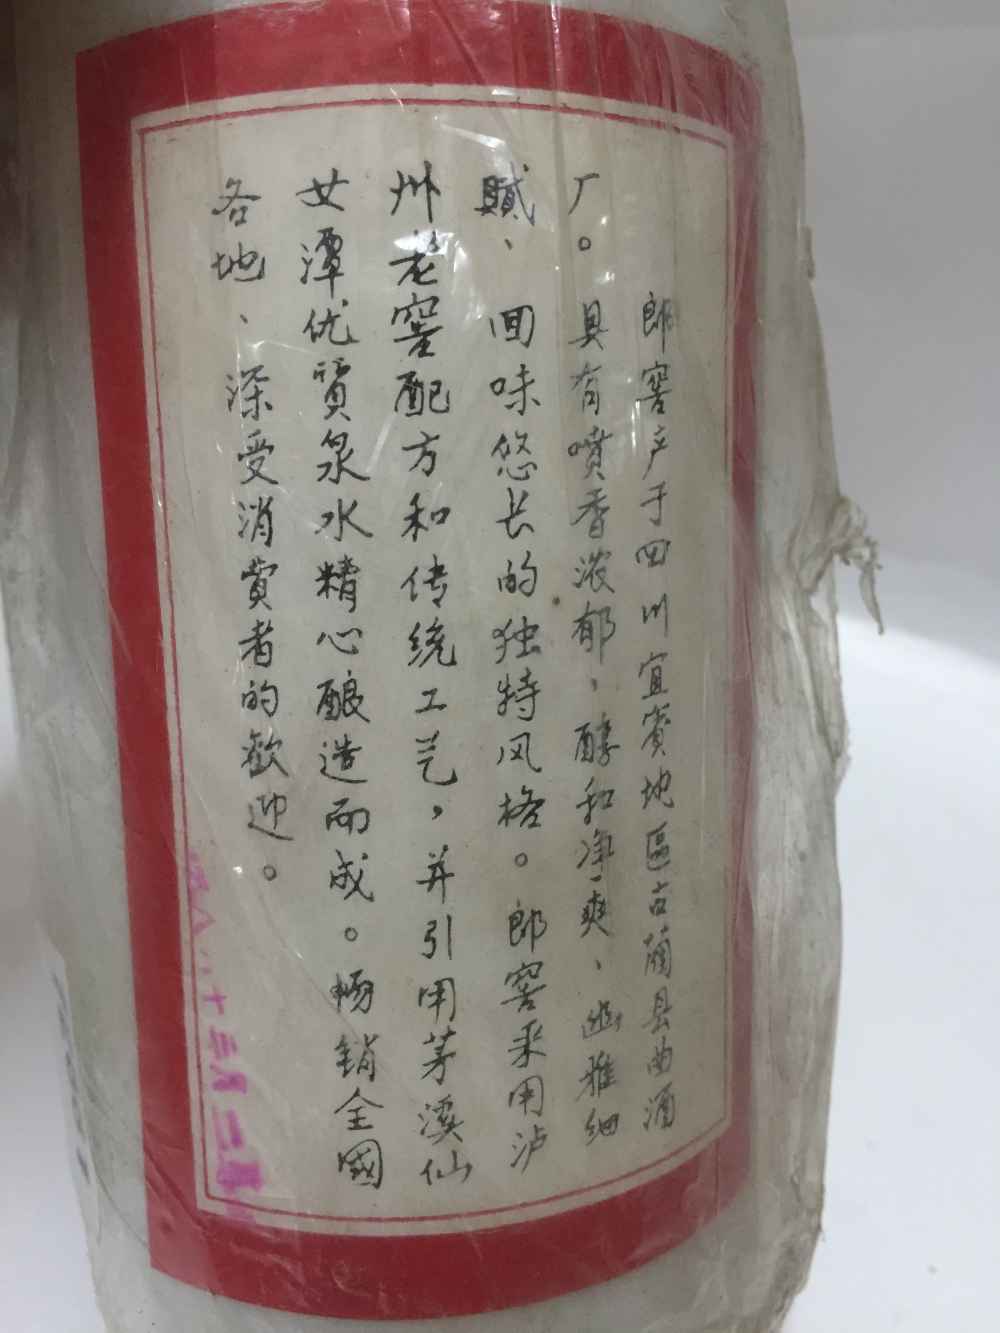 郎窖产于四川宜賓地區古藺县曲酒
厂。具有噴香浓郁、醇和净爽、幽雅细
膩、回味悠长的独特风格。郎窖采用泸
州老窖配方和传统工艺，并引用茅溪仙
女潭优質泉水精心酿造而成。畅銷全國
各地、深受消費者的歓迎。